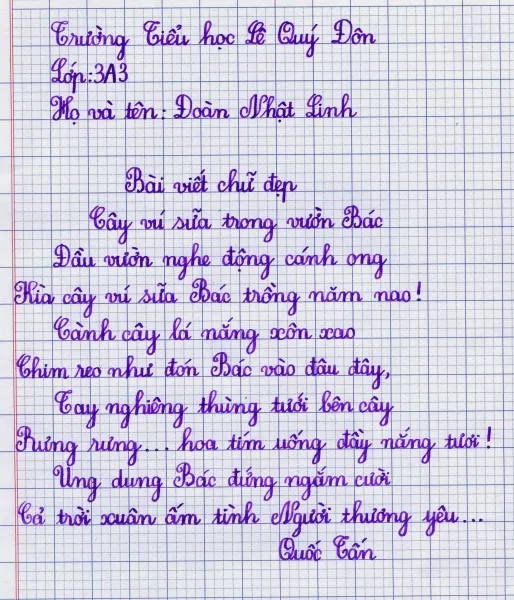 Trường Tiểu học Lê Quý Đôn
Lớp: 3A3
Họ và tên: Đoàn Nhật Linh
Bài viết chữ đẹp
Cây vú sữa trong vườn Bác
Đầu vườn nghe động cánh ong
Kìa cây vú sữa Bác trồng năm nao!
Cành cây lá nắng xôn xao
Chim reo như đón Bác vào đâu đây,
Tay nghiêng thùng tưới bên cây
Rưng rưng... hoa tím uống đầy nắng tươi!
Ung dung Bác đứng ngắm cười
Cả trời xuân ấm tình Người thương yêu...
Quốc Tấn